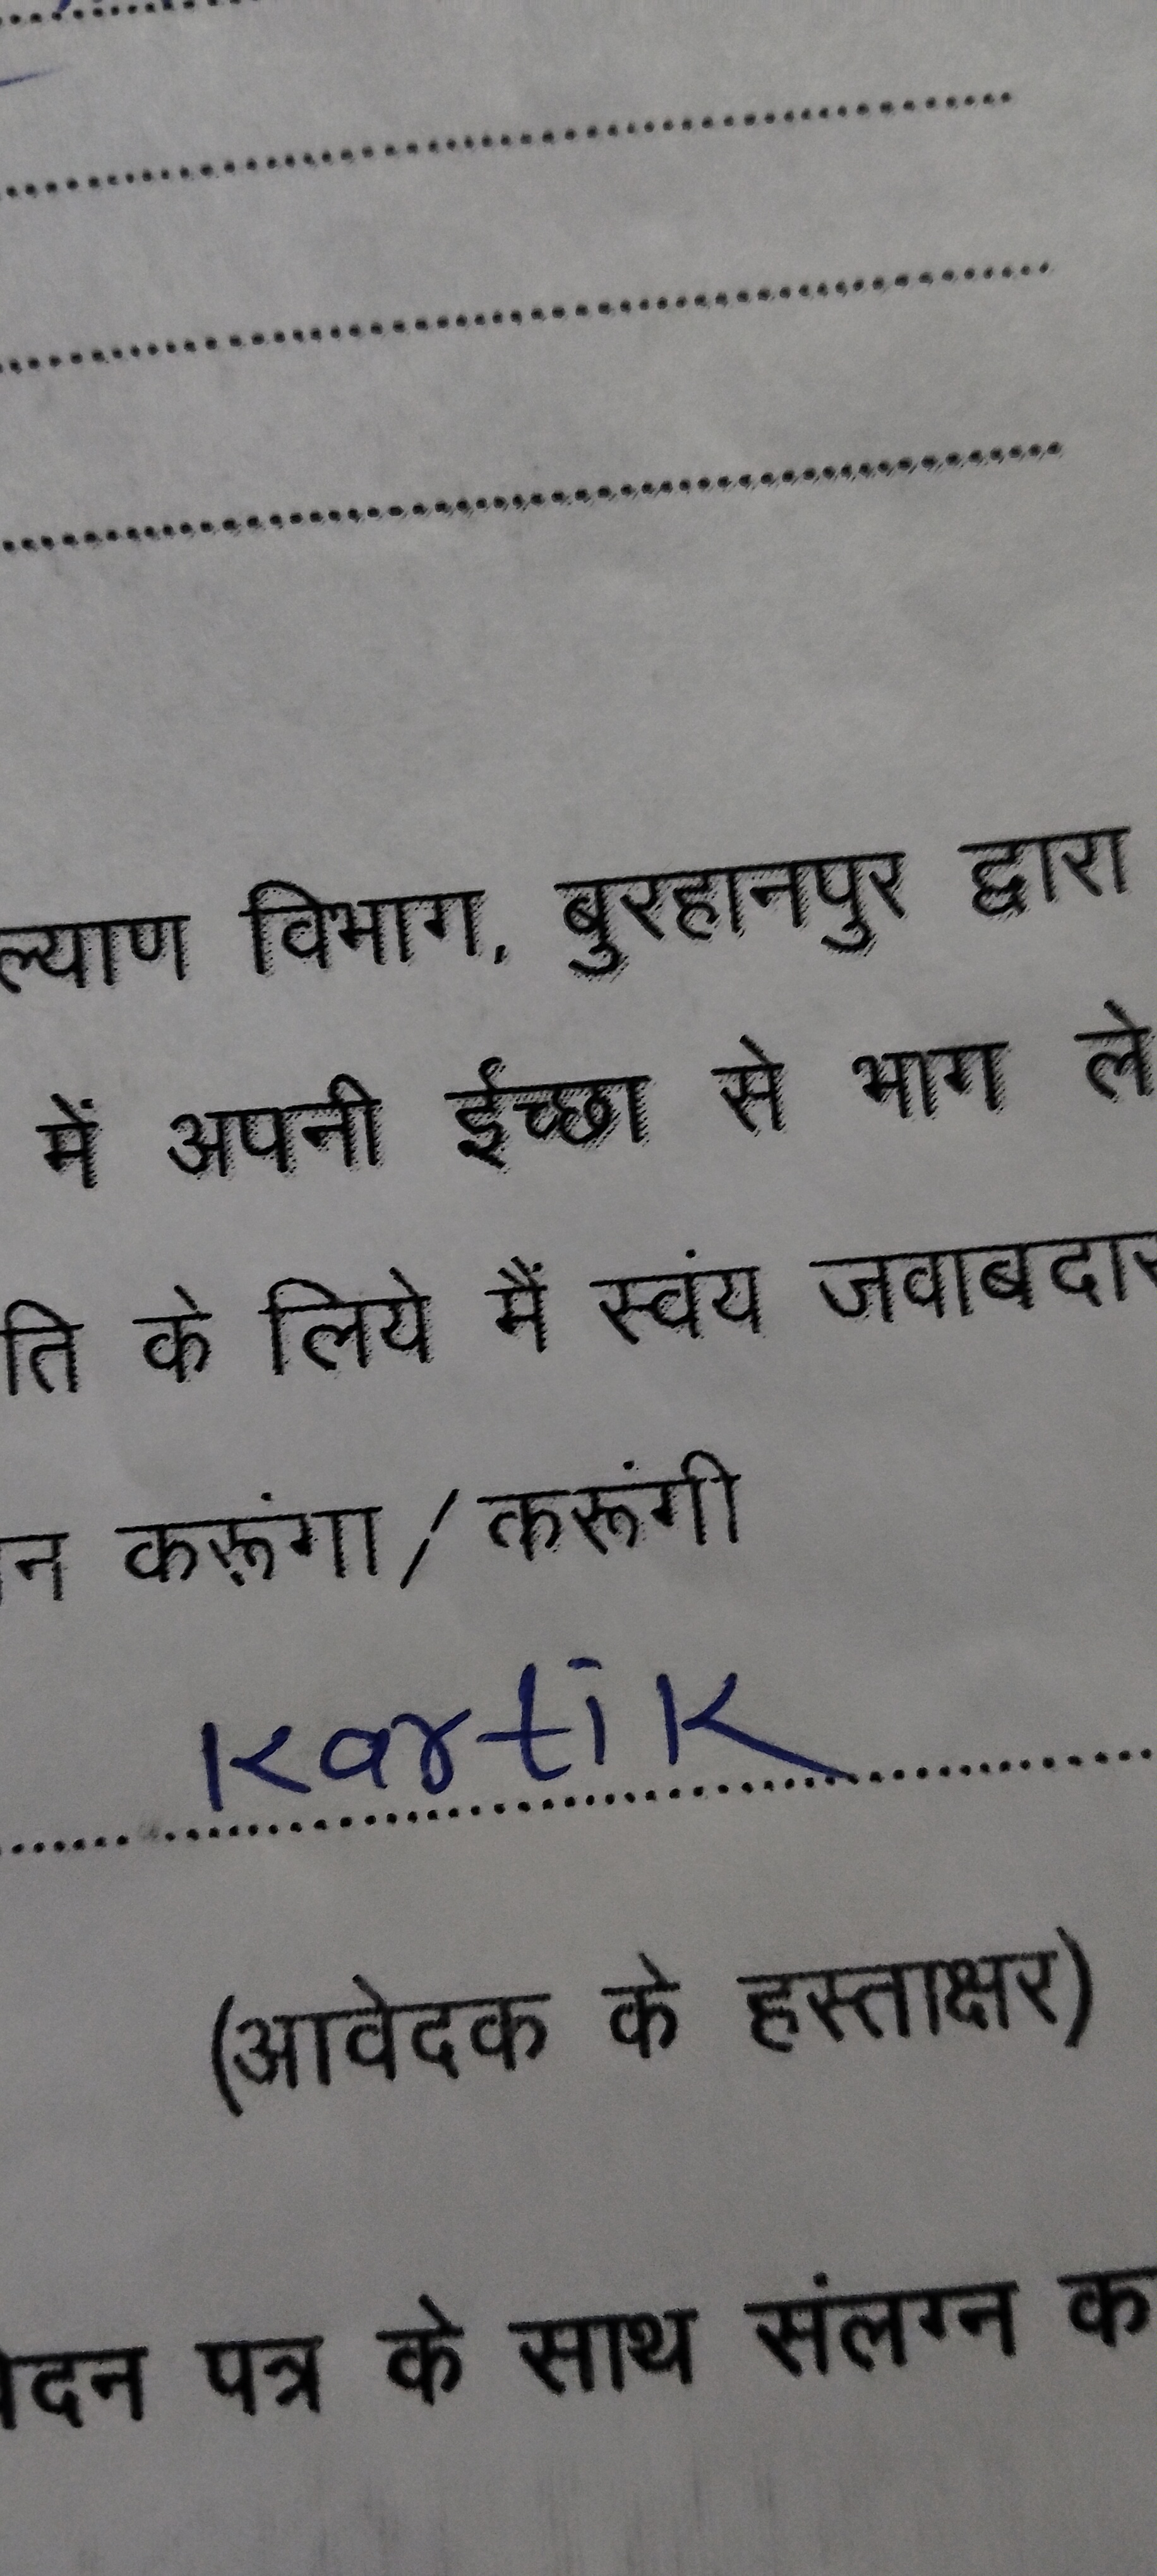 ल्याण विभाग, बुरहानपुर द्वारा
में अपनी ईच्छा से भाग ले
ति के लिये मैं स्वंय जवाबदार
न करूंगा/करूंगी
Kartik
(आवेदक के हस्ताक्षर)
वेदन पत्र के साथ संलग्न क